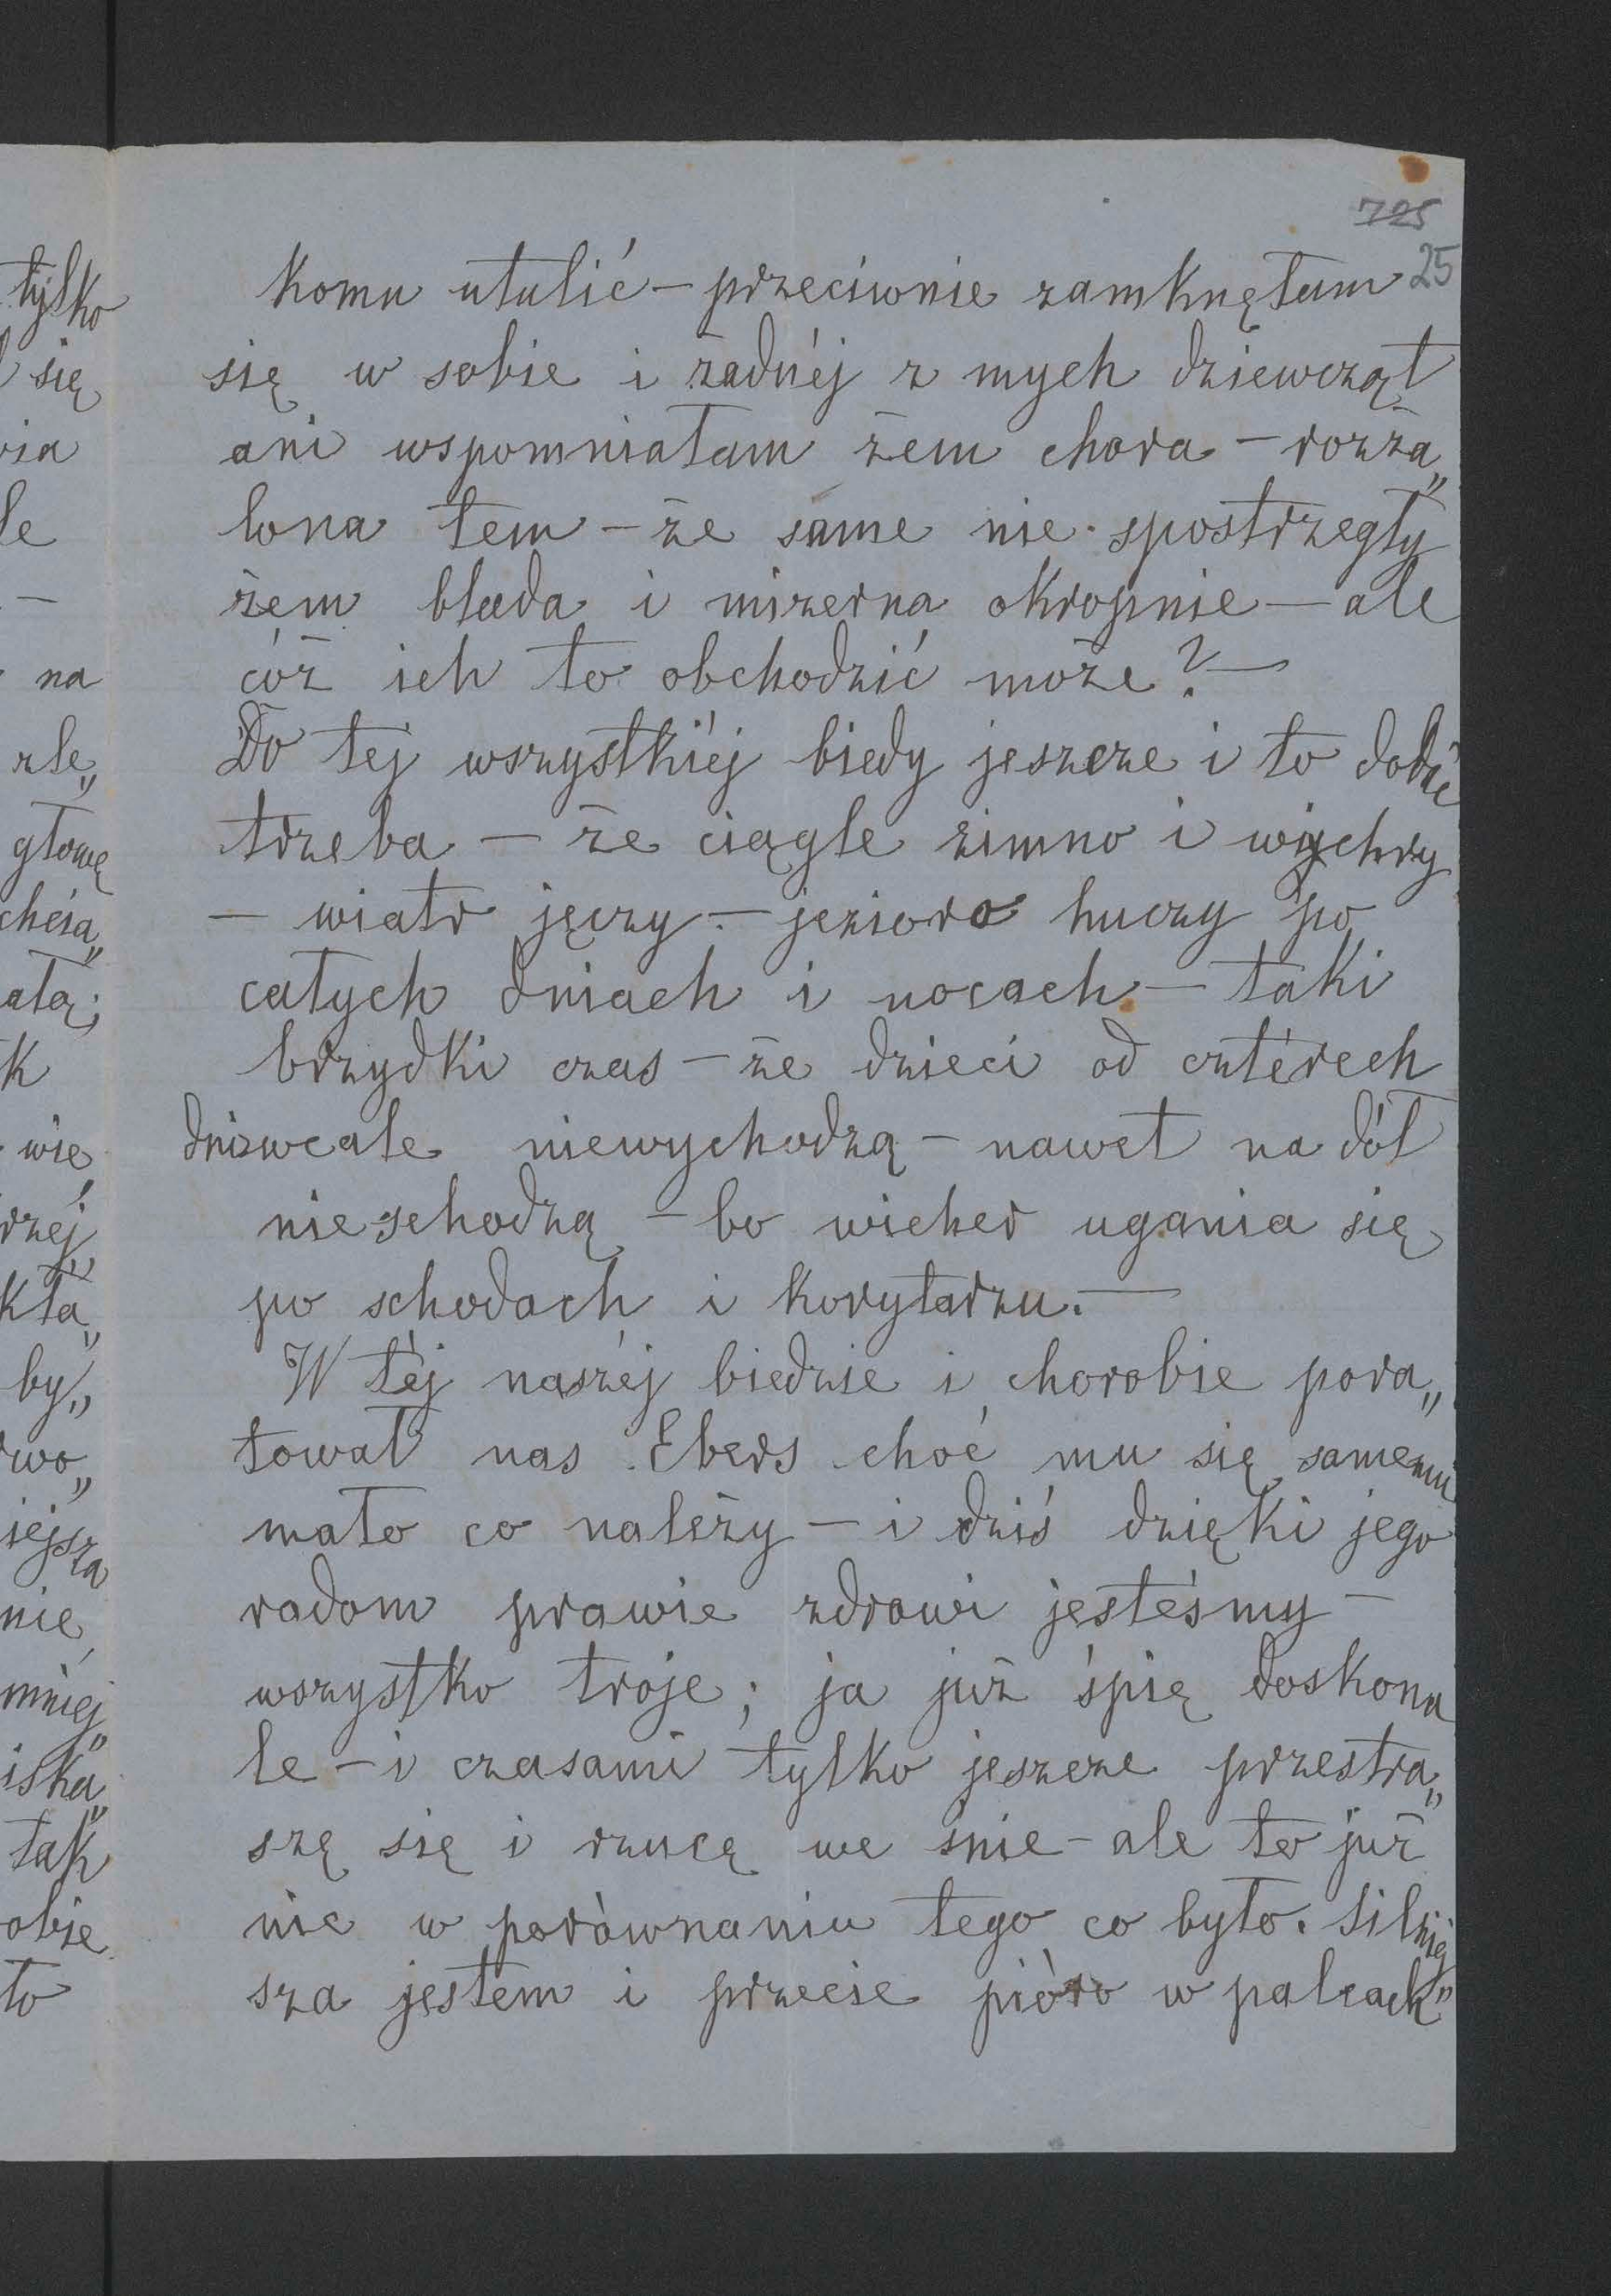 725
25
komu utulić – przeciwnie zamknęłam
się w sobie i żadnéj z mych dziewcząt
ani wspomniałam żem chora – rozża„
lona tem – że same nie spostrzegły
żem blada i mizerna okropnie – ale
cóż ich to obchodzić może? –
Do tej wszystkiéj biedy jeszcze i to dodać
trzeba – że ciągle zimno i wichry
– wiatr jęczy – jezioro huczy po
całych dniach i nocach – taki
brzydki czas – że dzieci od cztérech
dni wcale niewychodzą – nawet na dół
nieschodzą – bo wicher ugania się
po schodach i korytarzu. –
W téj naszéj biedzie i chorobie pora„
tował nas Ebers choć mu się samemu
mało co należy – i dziś dzięki jego
radom prawie zdrowi jesteśmy –
wszystko troje; ja już śpię doskona
le – i czasami tylko jeszcze przestra„
szę się i rzucę we śnie – ale to już
nic w porównaniu tego co było. Silniej
sza jestem i przecie pióro w palcach„
tylko
się
le
–
na
zle„
głowę
chcia„
k
wie
rzéj
kła„
by„
wo„
iejsza
nie
mniej
iska„
tak
obie
to